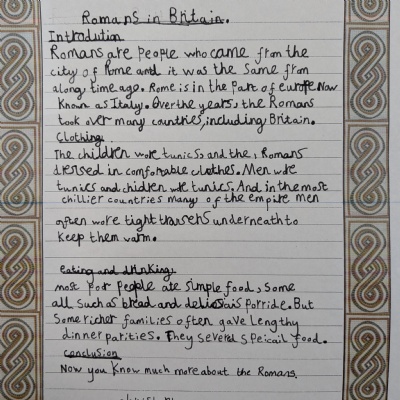 Romans in Britain.
Introdution
Romans are People who came from the
city of Rome and it was the same from
along time ago. Rome is in the Part of europe Now
Known as Italy. Over the years, the Romans
took over many countries, including Britain.
Clothing
The children wore tunics, and the, Romans
dressed in comfortable clothes. Men wore
tunics and chidren wore tunics. And in the most
chillier countries many of the empire men
often wore tight trousers underneath to
Keep them warm.
eating and drinking
most Poor People ate simple food, Some
all such as bread and delicious porride. But
Some richer families often gave Lengthy
dinner parities. They several speicail food.
conclusion
Now you Know much more about the Romans.